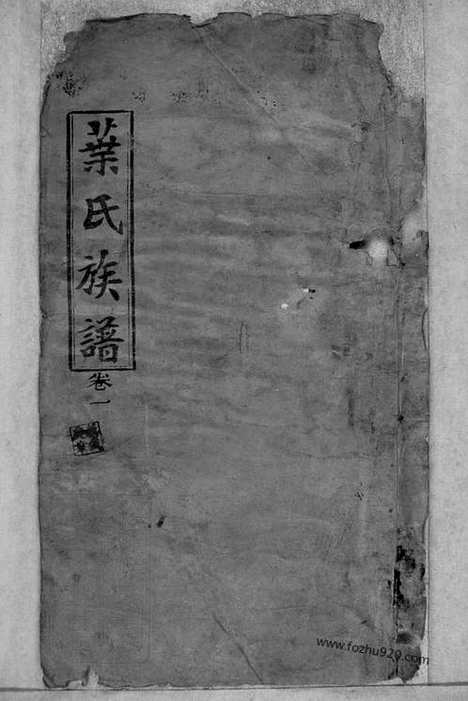 葉氏族譜
卷一
www.fozhu920.com